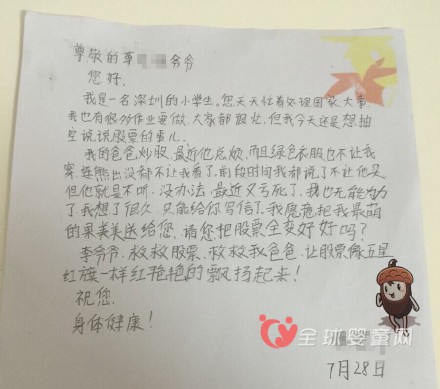 尊敬的李爷爷
您好,
我是一名深圳的小学生。您天天忙着处理国家大事,
我也有很多作业要做,大家都很忙,但我今天还是想抽
空说说股票的事儿。
我的爸爸炒股,最近他总烦,而且绿色衣服也不让我
穿,连熊出没都不让我看了。前段时间我都说了不让他买,
但他就是不听,没办法,最近又亏死了,我也无能为力
了。我想了很久,只能给你写信了。我愿意把我最萌
的果美美送给您,请您把股票全变好好吗?
李爷爷,救救股票,救救我爸爸,让股票像五星
红旗一样红艳艳的飘扬起来!
祝您
身体健康!
7月28日
全球婴童网